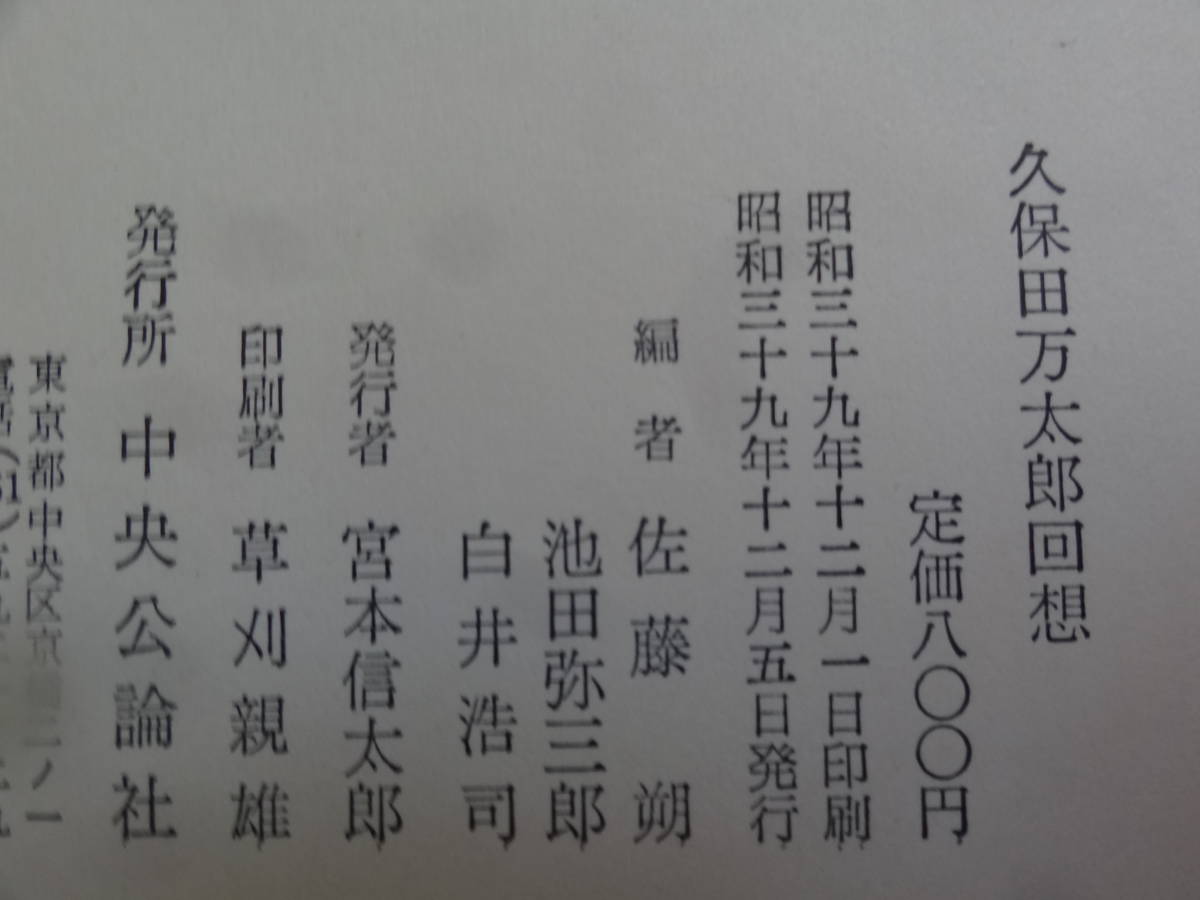 久保田万太郎回想
定価八〇〇円
昭和三十九年十二月一日印刷
昭和三十九年十二月五日発行
編者 佐藤朔
池田弥三郎
白井浩司
発行者 宮本信太郎
印刷者 草刈親雄
発行所 中央公論社
東京都中央区京